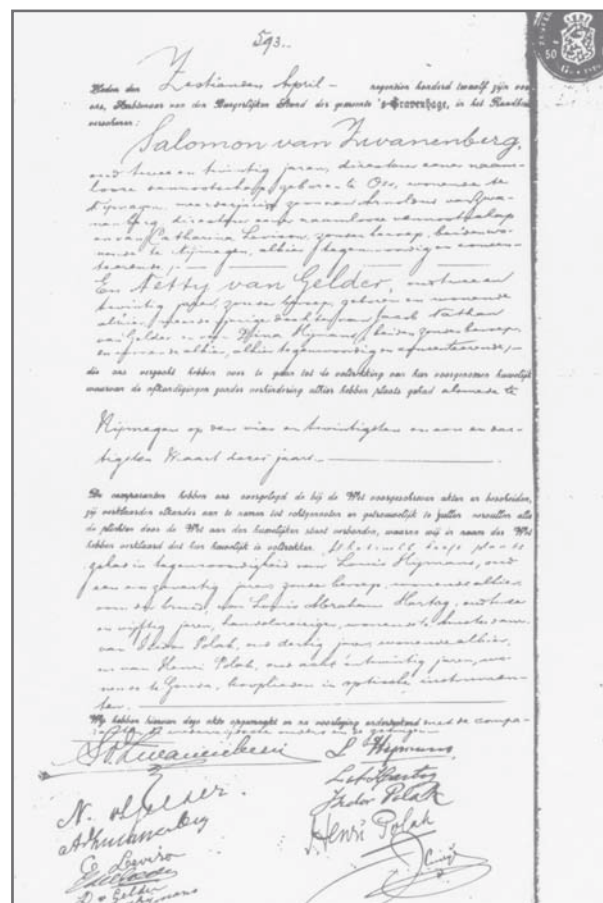 593.
Heden den Zestienden April – negentien honderd twaalf zijn voor
ons, Ambtenaar van den Burgerlijken Stand der gemeente 's-Gravenhage, in het Raadhuis
verschenen:
Salomon van Zwanenberg,
oud twee en twintig jaren, directeur eener naam-
looze vennootschap, geboren te Oss, wonende te
Nijmegen, meerderjarige zoon van Arnoldus van Zwa-
nenberg, directeur eener naamlooze vennootschap
en van Catharina Levison, zonder beroep, beiden wo-
nende te Nijmegen, alhier tegenwoordig en consen-
teerende; —
En Netty van Gelder, oud twee en
twintig jaren, zonder beroep, geboren en wonende
alhier, meerderjarige dochter van Jacob Nathan
van Gelder en van Dina Hijmans, beiden zonder beroep,
en wonende alhier, alhier tegenwoordig en consenteerende; —
die ons verzocht hebben over te gaan tot de voltrekking van hun voorgenomen huwelijk
waarvan de afkondigingen zonder verhindering alhier hebben plaats gehad alsmede te
Nijmegen op den vier en twintigsten en een en der-
tigsten Maart dezes jaars. —
De comparanten hebben ons overgelegd de bij de Wet voorgeschreven akten en bescheiden,
zij verklaarden elkander aan te nemen tot echtgenooten en getrouwelijk te zullen vervullen alle
de plichten door de Wet aan den huwelijken staat verbonden, waarna wij in naam der Wet
hebben verklaard dat hun huwelijk is voltrokken.
gehad in tegenwoordigheid van Louis Hijmans, oud
een en zeventig jaren, zonder beroep, wonende alhier,
van Louis Abraham Hartog, oud
en vijftig jaren, handelsreiziger, wonende te Amsterdam,
van Isidor Polak, oud dertig jaren, wonende alhier,
en van Henri Polak, oud acht en twintig jaren, wo-
nende te Gouda, kooplieden in optische instrumen-
ten. —
Wij hebben hiervan deze akte opgemaakt en na voorlezing onderteekend met de compa-
S v Zwanenberg
L Hijmans
N. v Gelder.
Isidor Polak
Henri Polak
E Levison
v Gelder
50